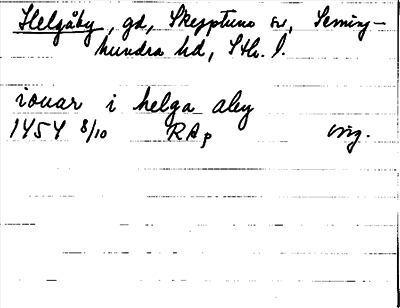 Helgåby, gd, Skepptuna sn, Seming-
hundra hd, Sth. l.
iouar i helga aby
1454 8/10 RAp orig.